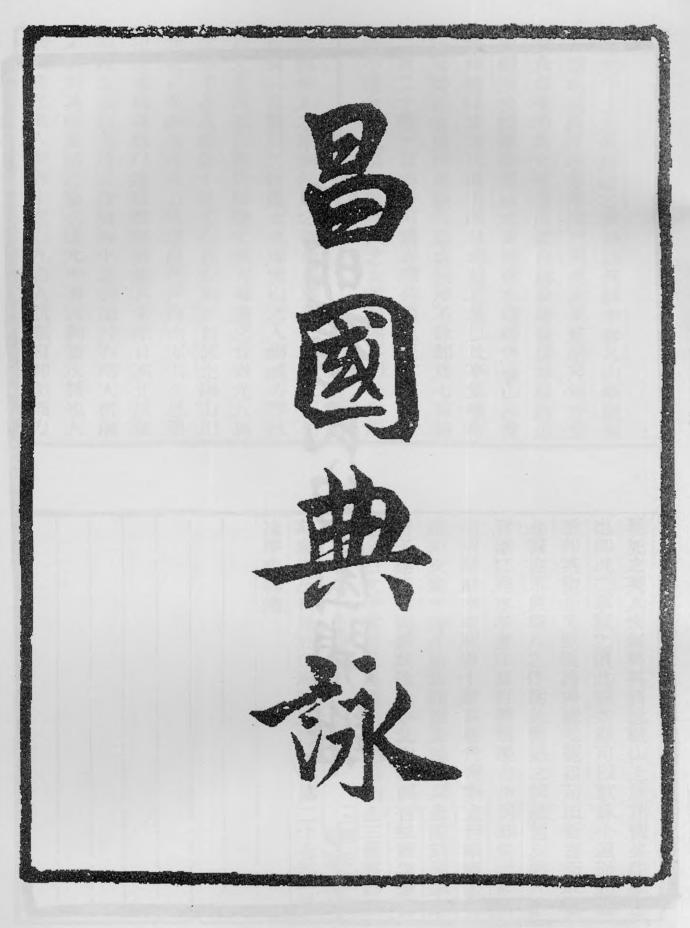 昌國典詠